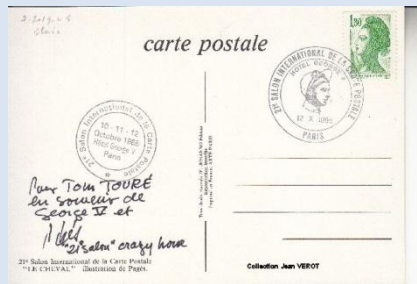 carte postale
1,80
2e SALON INTERNATIONAL DE LA CARTE POSTALE
HOTEL GEORGE V
12 X 1985
PARIS
21e Salon International de la Carte Postale
10 - 11 - 12
Octobre 1985
Hôtel George V
Paris
Pour Tom TOURÉ
en souvenir de
George V et
"21e salon" crazy horse
21e Salon International de la Carte Postale
"LE CHEVAL" illustration de Pagès.
Collection Jean VEROT